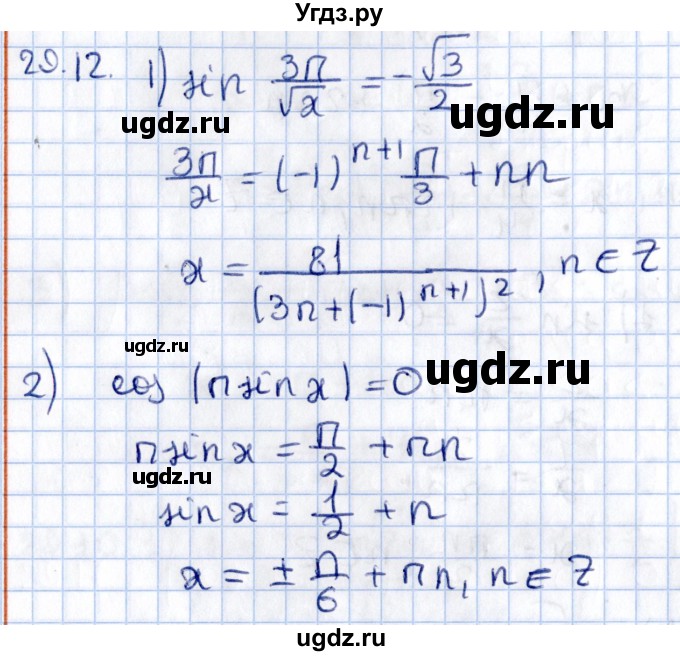 Угдз.ру
29.12. 1) sin 3π/√x = -√3/2
ugdz.ru ugdz.ru
3π/x = (-1)^(n+1) π/3 + πn
x = 81/(3n+(-1)^(n+1))^2, n ∈ Z
ugdz.ru ugdz.ru
2) cos (π sin x) = 0
ugdz.ru
π sin x = π/2 + πn
ugdz.ru
sin x = 1/2 + n
x = ± π/6 + πn, n ∈ Z
ugdz.ru